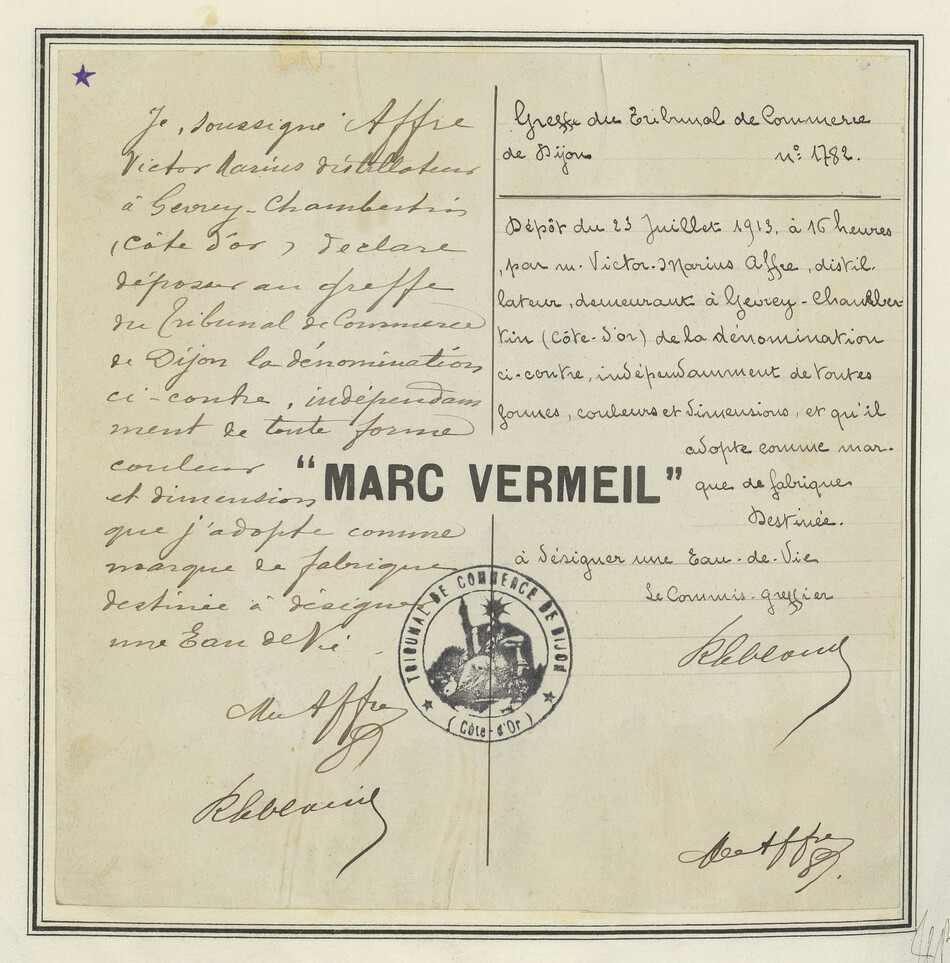 Je, soussigné Affre
Victor Marius distillateur
à Gevrey-Chambertin
(Côte d'or) declare
déposer au greffe
du Tribunal de Commerce
de Dijon la dénomination
ci-contre, indépendam
ment de toute forme
couleur
et dimension
que j'adopte comme
marque de fabrique
destinée à désigner
une Eau de Vie
Affre
Greffe du Tribunal de Commerce
de Dijon n°: 1782.
Dépôt du 23 Juillet 1913, à 16 heures
, par m. Victor-Marius Affre, distil-
lateur, demeurant à Gevrey-Chamber-
tin (Côte-d'or) de la dénomination
ci-contre, indépendamment de toutes
formes, couleurs et dimensions, et qu'il
adopte comme mar-
que de fabrique
Destinée.
à désigner une Eau-de-Vie
Le Commis-greffier
Affre
"MARC VERMEIL"
TRIBUNAL DE COMMERCE DE DIJON
(Côte-d'Or)